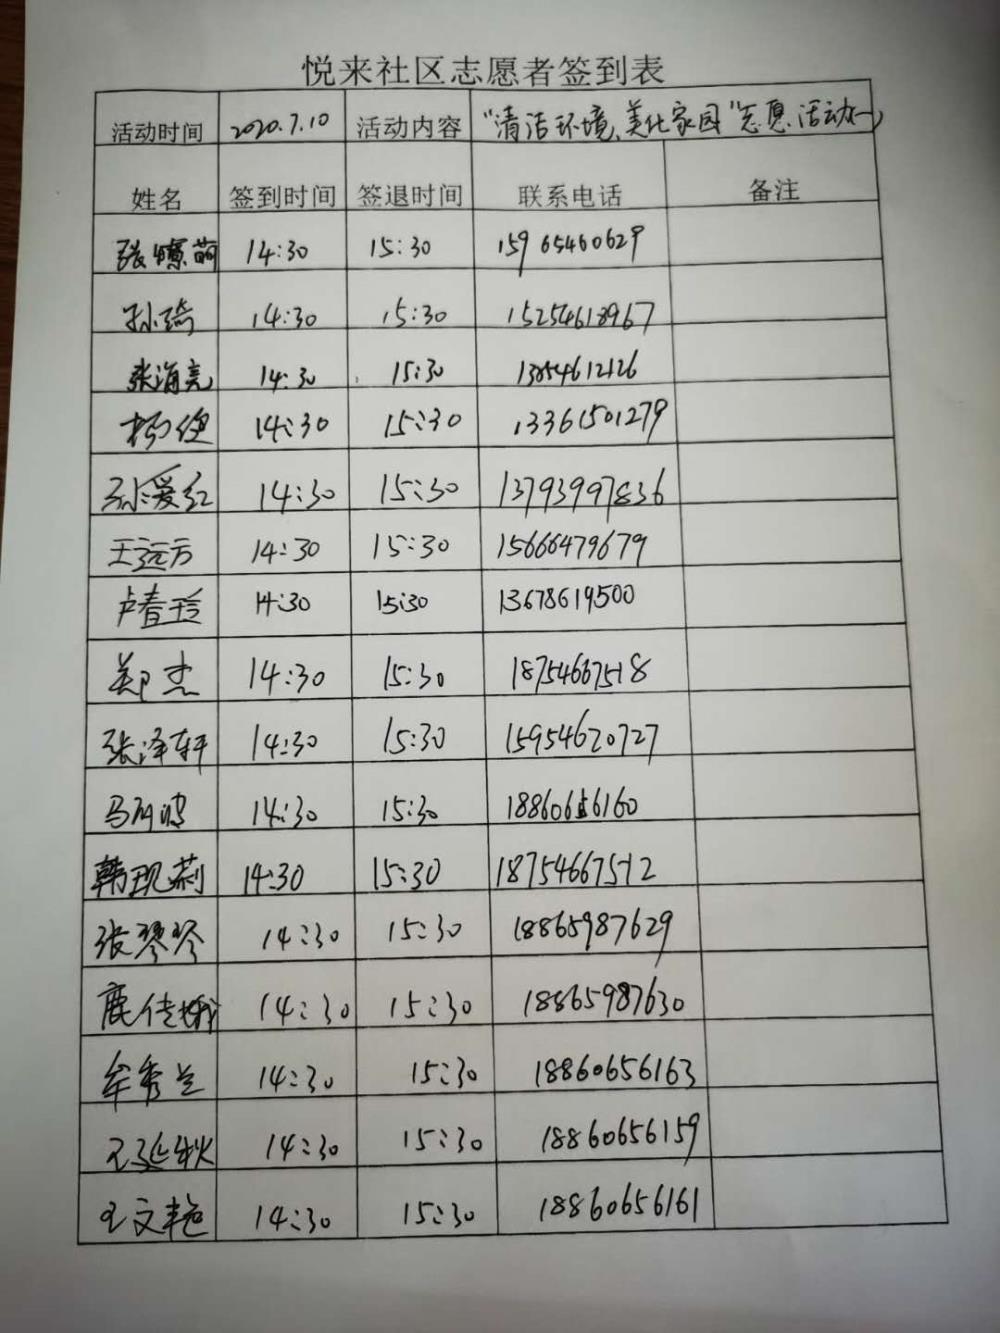 悦来社区志愿者签到表
活动时间 2020.7.10 活动内容 "清洁环境,美化家园"志愿活动
姓名 签到时间 签退时间 联系电话 备注
张燎萌 14:30 15:30 15965460629
孙琦 14:30 15:30 15254618967
张海亮 14:30 15:30 13054612126
杨俊 14:30 15:30 13361501279
孙爱红 14:30 15:30 13793997836
王远方 14:30 15:30 15666479679
卢春玲 14:30 15:30 13678619500
郑杰 14:30 15:30 18754667518
张泽轩 14:30 15:30 15954620727
马 14:30 15:30 18860656160
韩现莉 14:30 15:30 18754667512
张琴琴 14:30 15:30 18865987629
鹿佳 14:30 15:30 18865987630
牟秀兰 14:30 15:30 18860656163
王延秋 14:30 15:30 18860656159
王文艳 14:30 15:30 18860656161